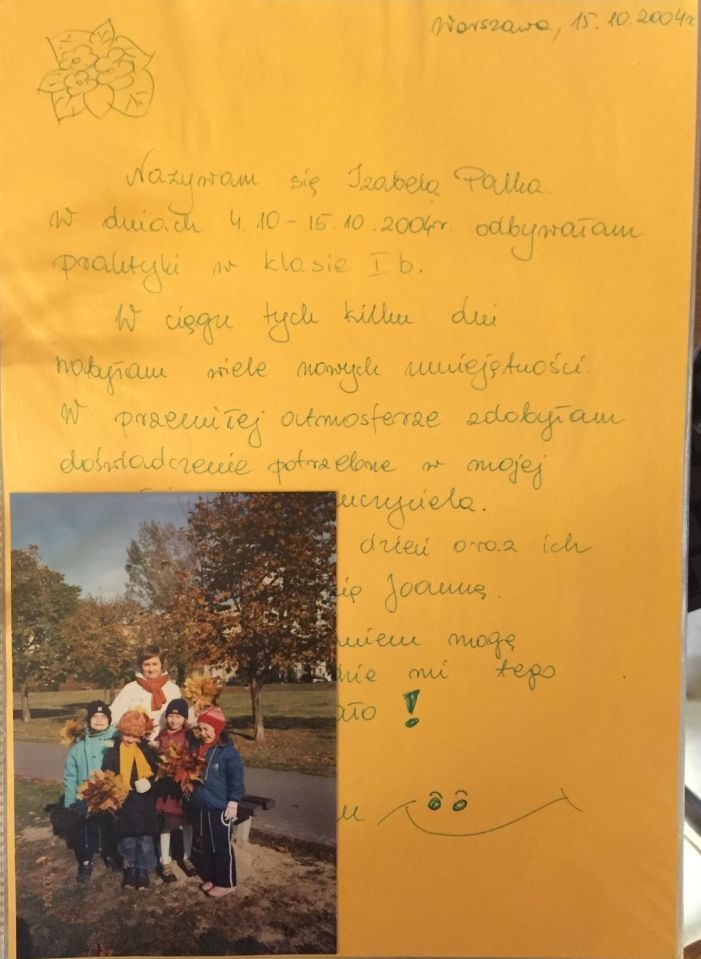 Warszawa, 15.10.2004r.
Nazywam się Izabela Pałka.
W dniach 4.10-15.10.2004r. odbywałam
praktyki w klasie I b.
W ciągu tych kilku dni
nabyłam wiele nowych umiejętności.
W przemiłej atmosferze zdobyłam
doświadczenie potrzebne w mojej
dzień oraz ich
Joannę.
mogę
mi tego
!